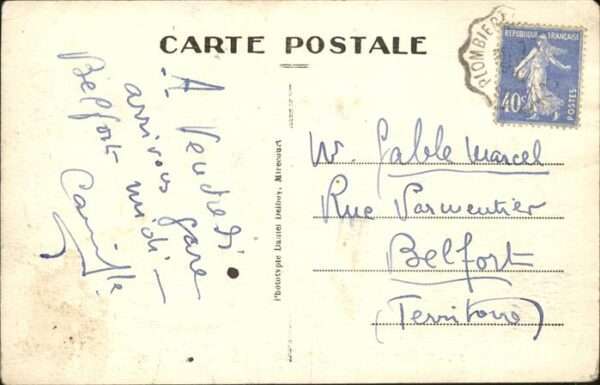 CARTE POSTALE
A Vendredi
arrivons gare
Belfort midi
Camille
Phototypie Daniel Delboy, Mirecourt
PLOMBIÈRES
REPUBLIQUE FRANÇAISE
40c
POSTES
M. Gable Marcel
Rue Parmentier
Belfort
(Territoire)